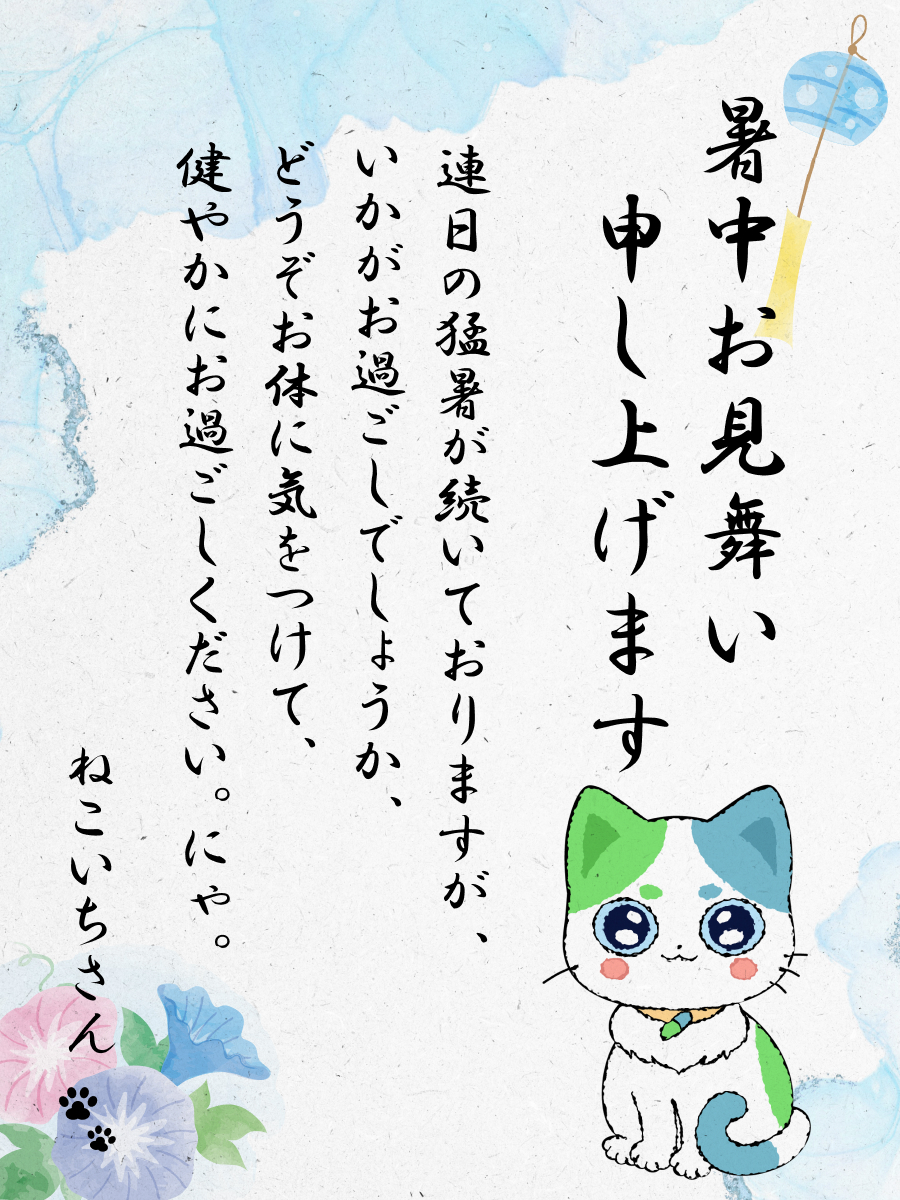 暑中お見舞い
申し上げます
連日の猛暑が続いておりますが、
いかがお過ごしでしょうか、
どうぞお体に気をつけて、
健やかにお過ごしください。にゃ。
ねこいちさん